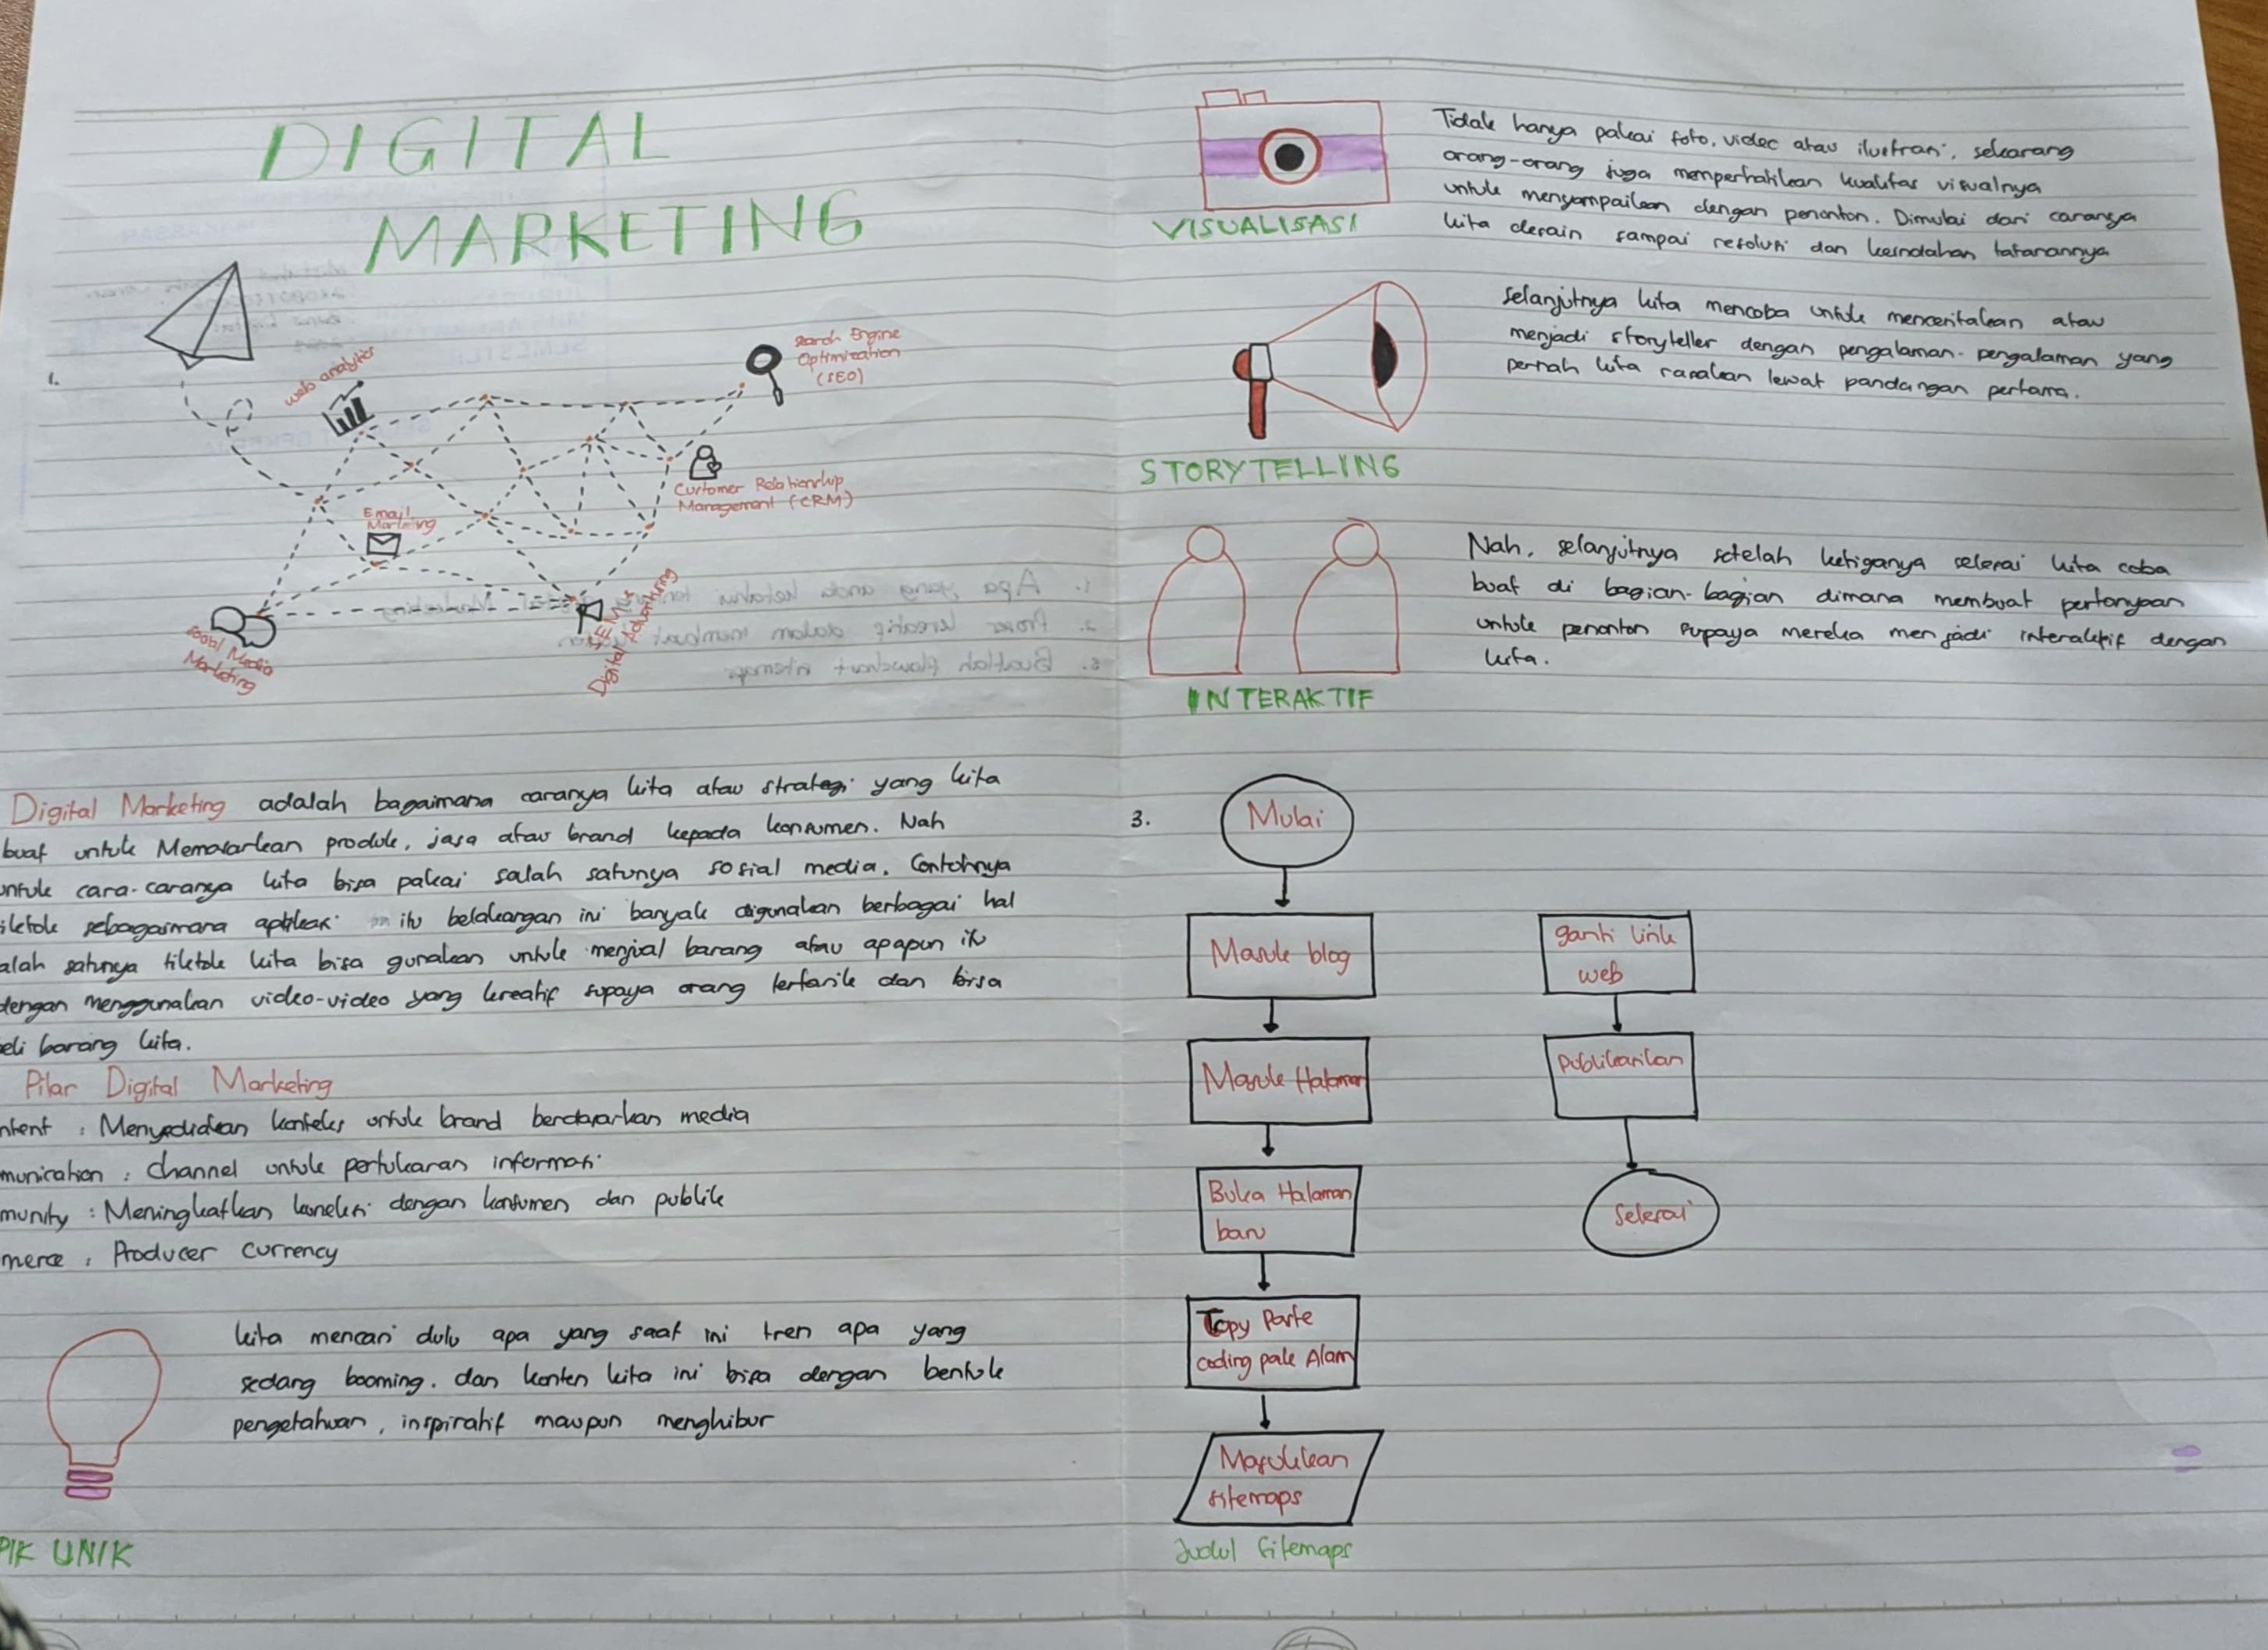 DIGITAL
MARKETING
1.
web analytics
Search Engine
Optimization
(SEO)
Customer Relationship
Management (CRM)
Email
Social Media
Marketing
SEM &
Digital Advertising
Digital Marketing adalah bagaimana caranya kita atau strategi yang kita
buat untuk Memasarkan produk, jasa atau brand kepada konsumen. Nah
untuk cara-caranya kita bisa pakai salah satunya sosial media. Contohnya
iktok sebagaimana itu belakangan ini banyak digunakan berbagai hal
alah satunya tiktok kita bisa gunakan untuk menjual barang atau apapun itu
dengan menggunakan video-video yang kreatif supaya orang tertarik dan bisa
eli barang kita.
Pilar Digital Marketing
ntent : Menyediakan konteks untuk brand berdasarkan media
munication : Channel untuk pertukaran informasi
munity : Meningkatkan koneksi dengan konsumen dan publik
merce : Producer currency
kita mencari dulu apa yang saat ini tren apa yang
sedang booming. dan konten kita ini bisa dengan bentuk
pengetahuan, inspiratif maupun menghibur
PIK UNIK
VISUALISASI
Tidak hanya pakai foto, video atau ilustrasi, sekarang
orang-orang juga memperhatikan kualitas visualnya
untuk menyampaikan dengan penonton. Dimulai dari caranya
kita desain sampai resolusi dan keindahan tatanannya
STORYTELLING
Selanjutnya kita mencoba untuk menceritakan atau
menjadi storyteller dengan pengalaman-pengalaman yang
pernah kita rasakan lewat pandangan pertama.
INTERAKTIF
Nah, selanjutnya setelah ketiganya selesai kita coba
buat di bagian-bagian dimana membuat pertanyaan
untuk penonton supaya mereka menjadi interaktif dengan
kita.
3.
Mulai
Masuk blog
Masuk Halaman
Buka Halaman
baru
Copy Paste
coding pak Alam
Masukkan
sitemaps
Judul Sitemaps
ganti link
web
Publikasikan
Selesai